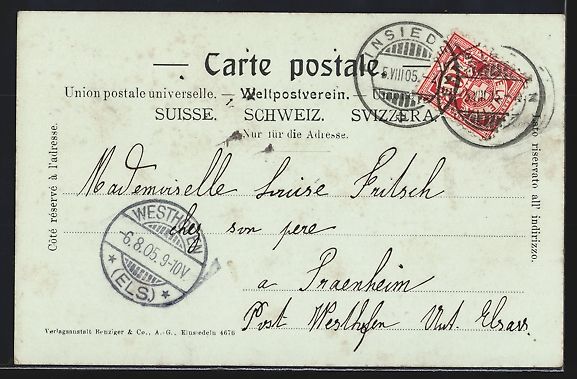 Carte postale.
Union postale universelle. — Weltpostverein.
SUISSE. SCHWEIZ. SVIZZERA.
Nur für die Adresse.
Côté réservé à l'adresse.
Lato riservato all' indirizzo.
INSIED
5.VIII.05.
WESTHOFEN
-6.8.05.9-10V
(ELS.)
Mademoiselle Louise Fritsch
chez son pere
a Traenheim
Post Westhofen Unt. Elsass
Verlagsanstalt Benziger & Co., A.-G., Einsiedeln 4676